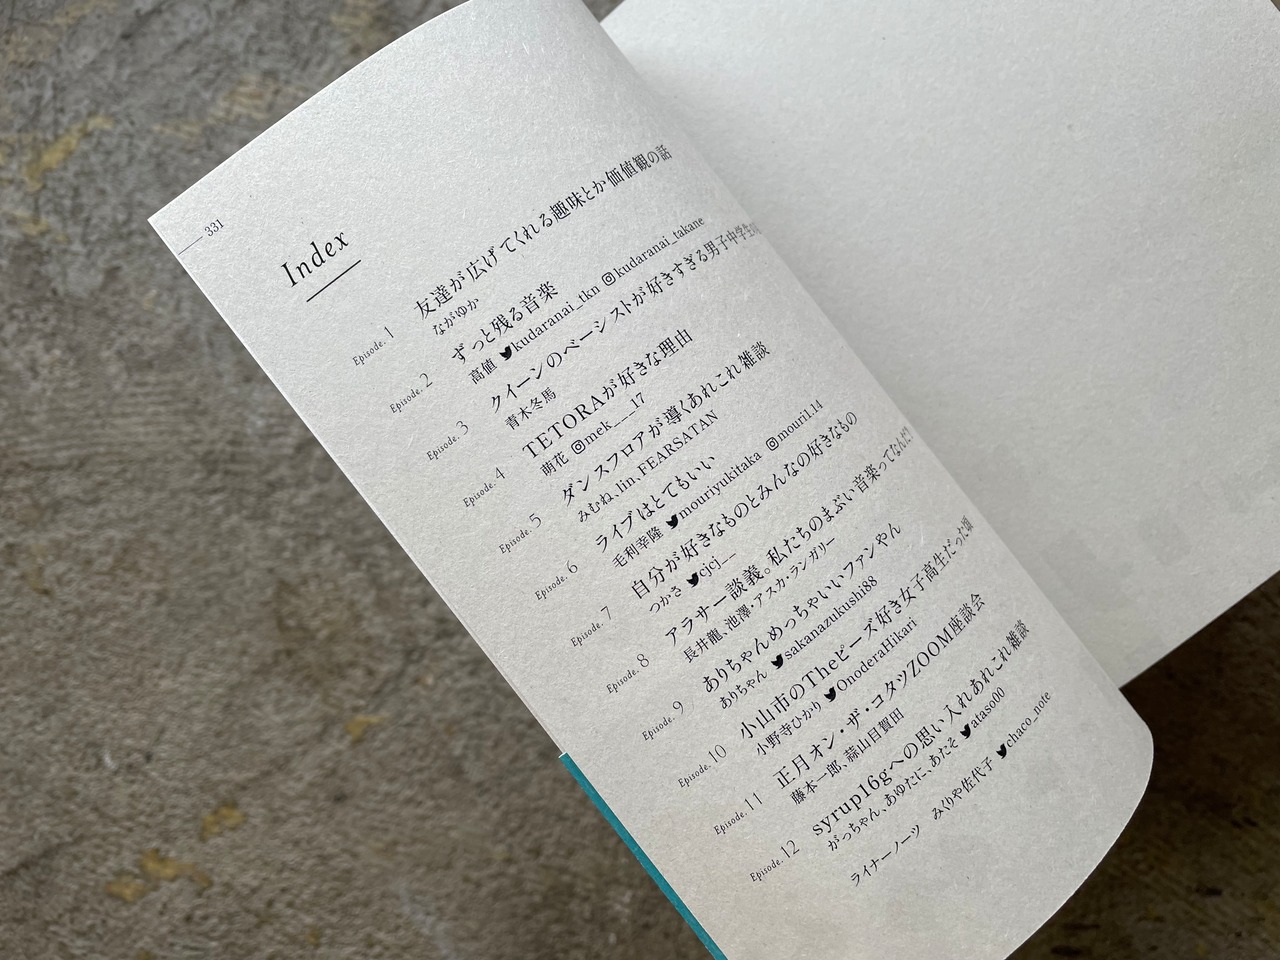 331
Index
Episode. 1 友達が広げてくれる趣味とか価値観の話
ながゆか
Episode. 2 ずっと残る音楽
高値 kudaranai_tkn kudaranai_takane
Episode. 3 クイーンのベーシストが好きすぎる男子中学生
青木冬馬
Episode. 4 TETORAが好きな理由
萌花 @mek___17
Episode. 5 ダンスフロアが導くあれこれ雑談
みむね、lin、FEARSATAN
Episode. 6 ライブはとてもいい
毛利幸隆 mouriyukitaka mouri1.14
Episode. 7 自分が好きなものとみんなの好きなもの
つかさ cjcj__
Episode. 8 アラサー談義。私たちのまぶい音楽ってなんだ
長井龍、池澤・アスカ・ランガリー
Episode. 9 ありちゃんめっちゃいいファンやん
ありちゃん sakanazukushi88
Episode. 10 小山市のTheピーズ好き女子高生だった頃
小野寺ひかり OnoderaHikari
Episode. 11 正月オン・ザ・コタツZOOM座談会
藤本一郎、蒜山目賀田
Episode. 12 syrup16gへの思い入れあれこれ雑談
がっちゃん、あゆたに、あだそ ataso00
ライナーノーツ みくりや佐代子 chaco_note